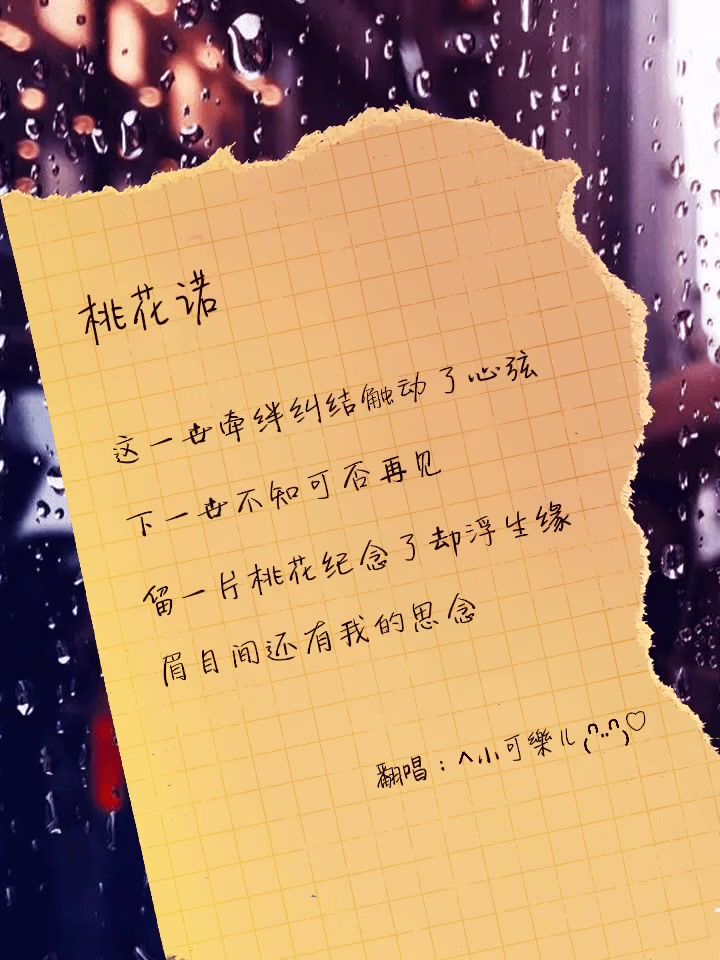 桃花诺
这一世牵绊纠结触动了心弦
下一世不知可否再见
留一片桃花纪念了却浮生缘
眉目间还有我的思念
翻唱：^小可樂儿 ₍ᐢ..ᐢ₎♡